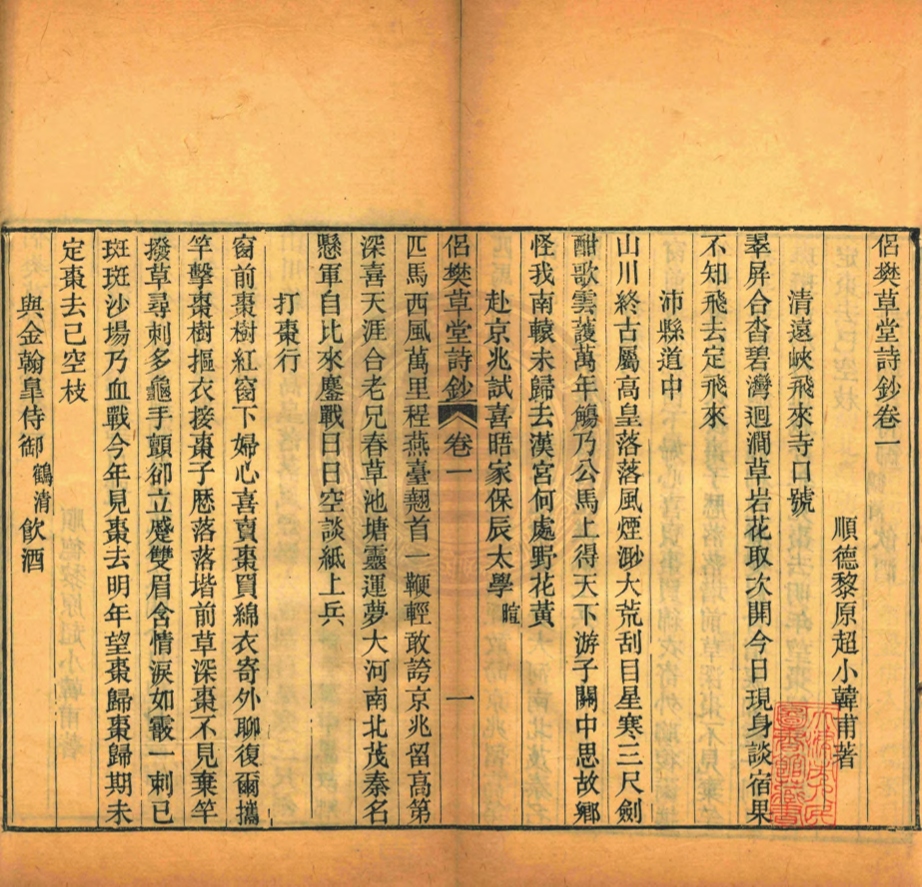 侶樊草堂詩鈔卷一
順德黎原超小韓甫著
清遠峽飛來寺口號
翠屏合沓碧灣迴澗草岩花取次開今日現身談宿果
不知飛去定飛來
沛縣道中
山川終古屬高皇落落風煙渺大荒刮目星寒三尺劍
酣歌雲護萬年觴乃公馬上得天下游子關中思故鄉
怪我南轅未歸去漢宮何處野花黃
赴京兆試喜晤家保辰太學暄
侶樊草堂詩鈔 卷一 一
匹馬西風萬里程燕臺翹首一鞭輕敢誇京兆留高第
深喜天涯合老兄春草池塘靈運夢大河南北茂秦名
懸軍自比來鏖戰日日空談紙上兵
打棗行
窗前棗樹紅窗下婦心喜賣棗買綿衣寄外聊復爾攜
竿擊棗樹摳衣接棗子歷落落堦前草深棗不見棄竿
撥草尋刺多龜手顫卻立蹙雙眉含情淚如霰一刺已
斑斑沙場乃血戰今年見棗去明年望棗歸棗歸期未
定棗去已空枝
與金翰皋侍御鶴清飲酒